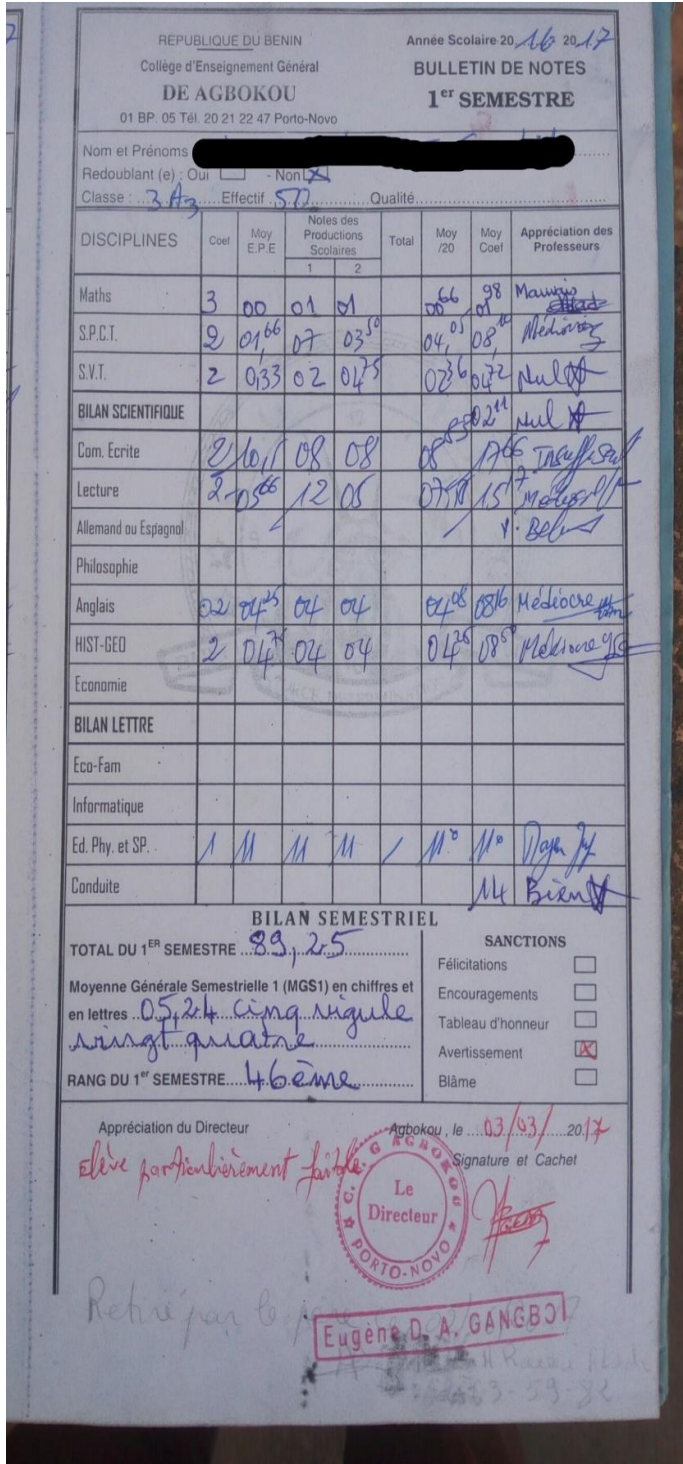 REPUBLIQUE DU BENIN
Collège d'Enseignement Général
DE AGBOKOU
01 BP. 05 Tél. 20 21 22 47 Porto-Novo
Année Scolaire 20 16 20 17
BULLETIN DE NOTES
1er SEMESTRE
Nom et Prénoms
Redoublant (e) : Oui - Non X
Classe : 3 A3 Effectif Qualité
DISCIPLINES Coef Moy E.P.E Notes des Productions Scolaires 1 2 Total Moy /20 Moy Coef Appréciation des Professeurs
Maths 3 00 01 01 00 66 01 98 Mauvais
S.P.C.T. 2 01,66 07 03 50 04,05 08, Médiocre
S.V.T. 2 0,33 02 04 75 02 36 04 72 Nul
BILAN SCIENTIFIQUE 02 11 Nul
Com. Ecrite 2 10,5 08 08 08 83 17 66 Insuffisant
Lecture 2 05 66 12 05 15 17
Allemand ou Espagnol
Philosophie
Anglais 02 04 25 04 04 04 08 08 16 Médiocre
HIST-GEO 2 04 75 04 04 04 25 08 50 Médiocre
Economie
BILAN LETTRE
Eco-Fam
Informatique
Ed. Phy. et SP. 1 11 11 11 / 11 11
Conduite 14 Bien
BILAN SEMESTRIEL
TOTAL DU 1ER SEMESTRE 89,25
Moyenne Générale Semestrielle 1 (MGS1) en chiffres et
en lettres 05,24 cinq vigule
vingt quatre
RANG DU 1er SEMESTRE 46ème
SANCTIONS
Félicitations
Encouragements
Tableau d'honneur
Avertissement X
Blâme
Appréciation du Directeur
Elève particulièrement faible
Agbokou, le 03/03/ 2017
Signature et Cachet
C. E. G AGBOKOU
Le
Directeur
PORTO-NOVO
Retiré par le
Eugène D. A. GANGBO